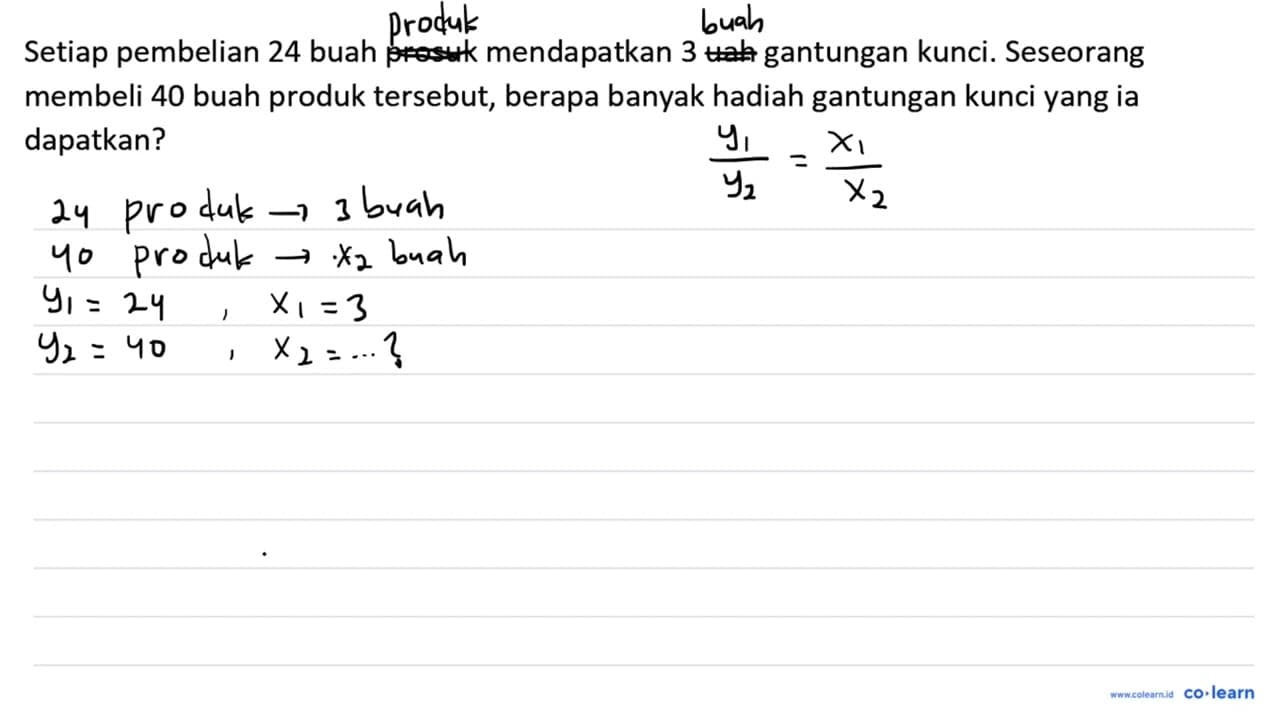 produk buah
Setiap pembelian 24 buah prosuk mendapatkan 3 uah gantungan kunci. Seseorang
membeli 40 buah produk tersebut, berapa banyak hadiah gantungan kunci yang ia
dapatkan?
y₁/y₂ = x₁/x₂
24 produk → 3 buah
40 produk → x₂ buah
y₁ = 24 , x₁ = 3
y₂ = 40 , x₂ = ...?
www.colearn.id co·learn